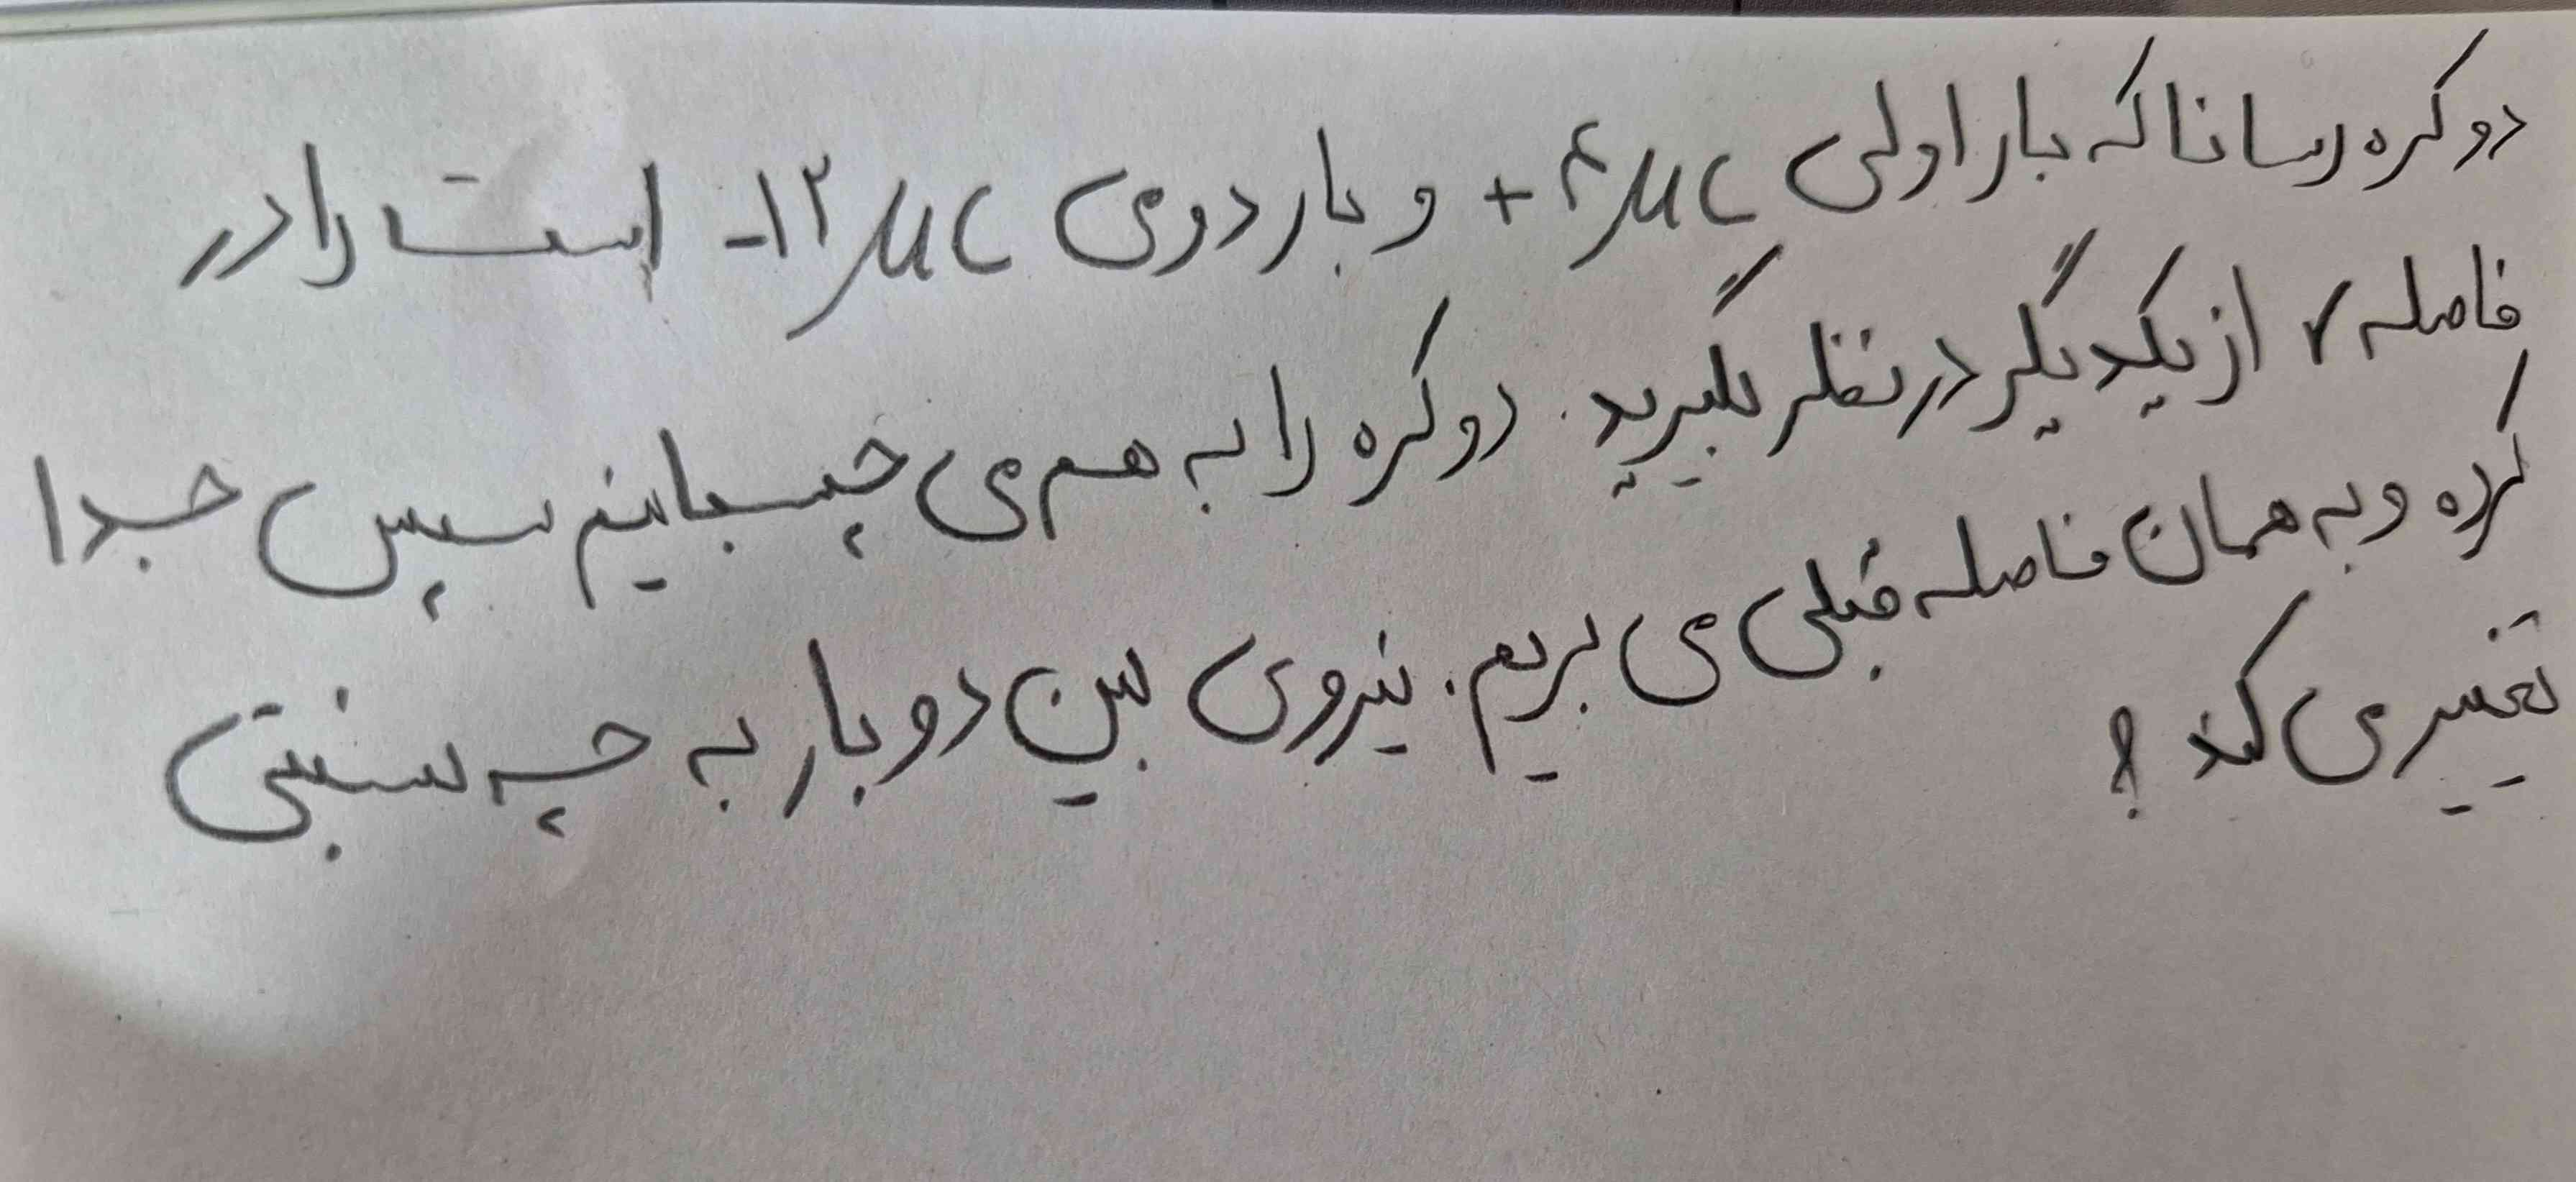 دو کره رسانا که بار اولی +۴μC و بار دومی -۱۲μC است را در
فاصله r از یکدیگر در نظر بگیرید. دو کره را به هم می چسبانیم سپس جدا
کرده و به همان فاصله قبلی می بریم. نیروی بین دو بار به چه نسبتی
تغییر می کند؟